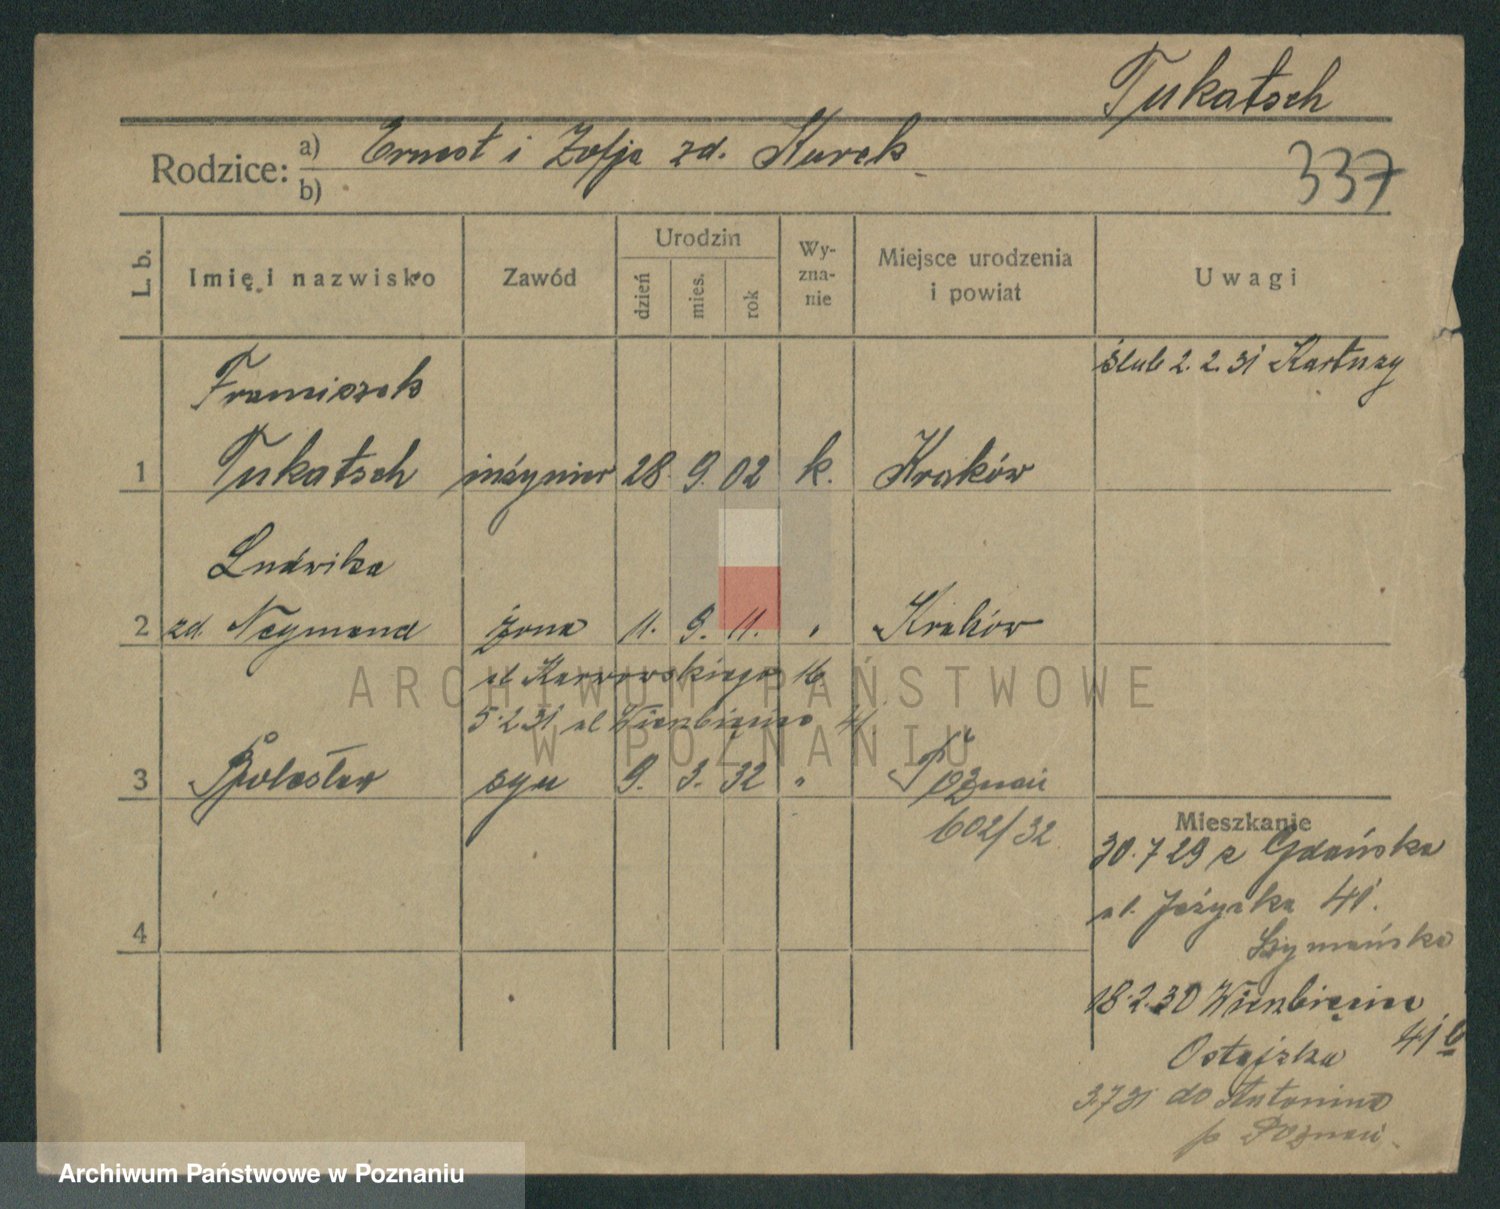 Tukatsch
337
Rodzice: a) Ernest i Zofja zd. Kurek
b)
L. b.
Imię i nazwisko
Zawód
Urodzin
dzień
mies.
rok
Wy-
zna-
nie
Miejsce urodzenia
i powiat
Uwagi
ślub 2. 2. 31 Kartuzy
Franciszek
1 Tukatsch inżynier 28. 9. 02 k. Kraków
Ludwika
2 zd. Neymand żona 11. 9. 11. " Kraków
ul Karwowskiego 16
5.2.31 ul Wierzbięcice 41
3 Bolesław syn 9. 3. 32 " Poznań
602/32
4
Mieszkanie
30.7 29 z Gdańska
ul. Jeżycka 41.
Szymańska
18.2.30 Wierzbięcice
41 b
Ostojska
3731 do Antonina
p Poznań
ARCHIWUM PAŃSTWOWE
W POZNANIU
Archiwum Państwowe w Poznaniu